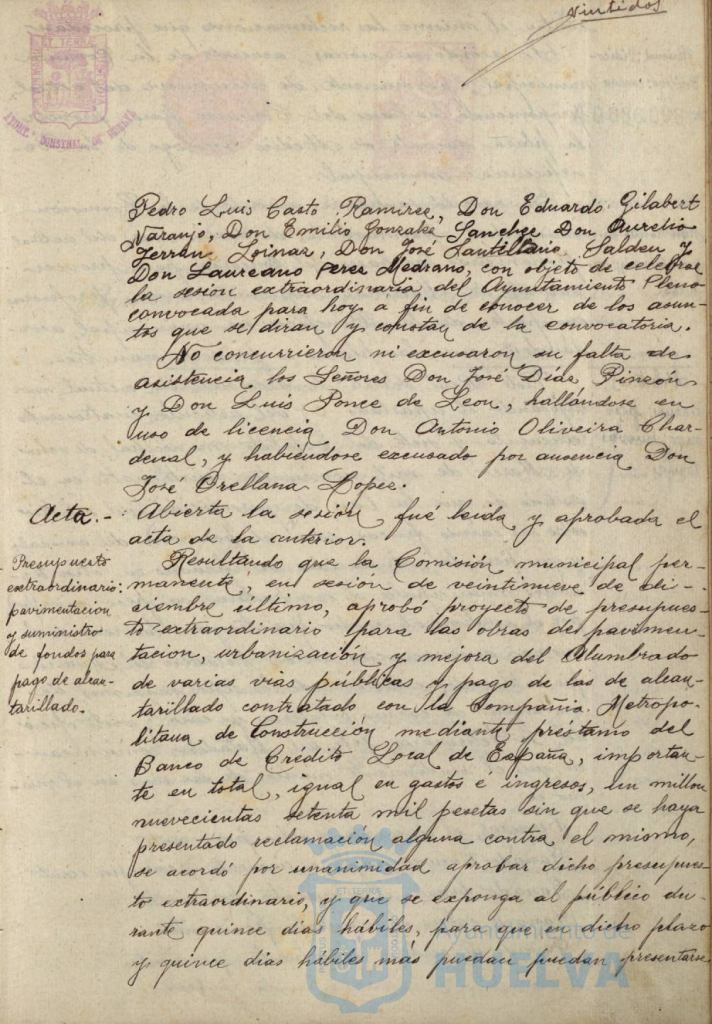 Vintidos
AYUNT. CONSTNAL. DE HUELVA
Pedro Luis Casto Ramirez, Don Eduardo Gilabert
Naranjo, Don Emilio Gonzalez Sanchez Don Aurelio
Terrán Loinaz, Don José Santillana Salden y
Don Laureano Perez Medrano, con objeto de celebrar
la sesión extraordinaria del Ayuntamiento Pleno
convocada para hoy á fin de conocer de los asun-
tos que se diran y constan de la convocatoria.
No concurrieron ni excusaron su falta de
asistencia los Señores Don José Díaz Pinzón
y Don Luis Ponce de Leon, hallándose en
uso de licencia Don Antonio Oliveira Char-
denal, y habiéndose excusado por ausencia Don
José Orellana Lopez.
Acta.- Abierta la sesión fué leida y aprobada el
acta de la anterior.
Presupuesto
extraordinario:
pavimentacion
y suministro
de fondos para
pago de alcan-
tarillado.
Resultando que la Comisión municipal per-
manente, en sesión de veintinueve de di-
ciembre último, aprobó proyecto de presupues-
to extraordinario para las obras de pavimen-
tacion, urbanización y mejora del Alumbrado
de varias vias públicas y pago de las de alcan-
tarillado contratado con la Compañia Metropo-
litana de Construcción mediante préstamo del
Banco de Crédito Local de España, importan-
te en total, igual en gastos é ingresos, un millon
nuevecientas setenta mil pesetas sin que se haya
presentado reclamación alguna contra el mismo,
se acordó por unanimidad aprobar dicho presupues-
to extraordinario, y que se exponga al público du-
rante quince dias hábiles, para que en dicho plazo
y quince dias hábiles más puedan puedan presentarse
Ayuntamiento de
HUELVA